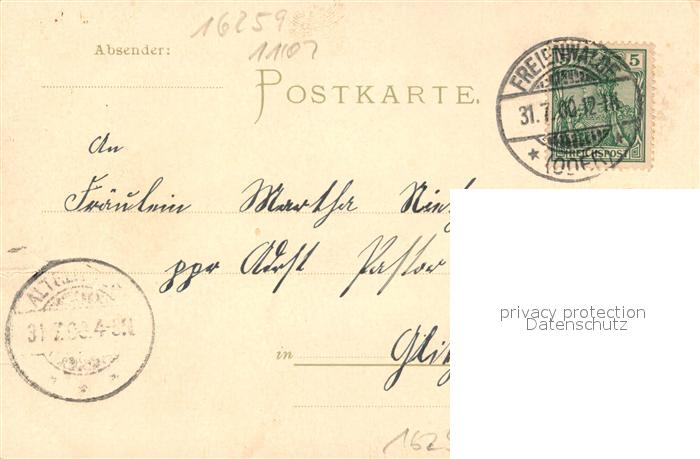 16259
1107
Absender:
POSTKARTE.
FREIENWALDE
31.7.00.12-1N
★ (ODER)
5
REICHSPOST
An
Fräulein Martha
ppr Adrst Pastor
31.7.00.4-5N
in
privacy protection
Datenschutz